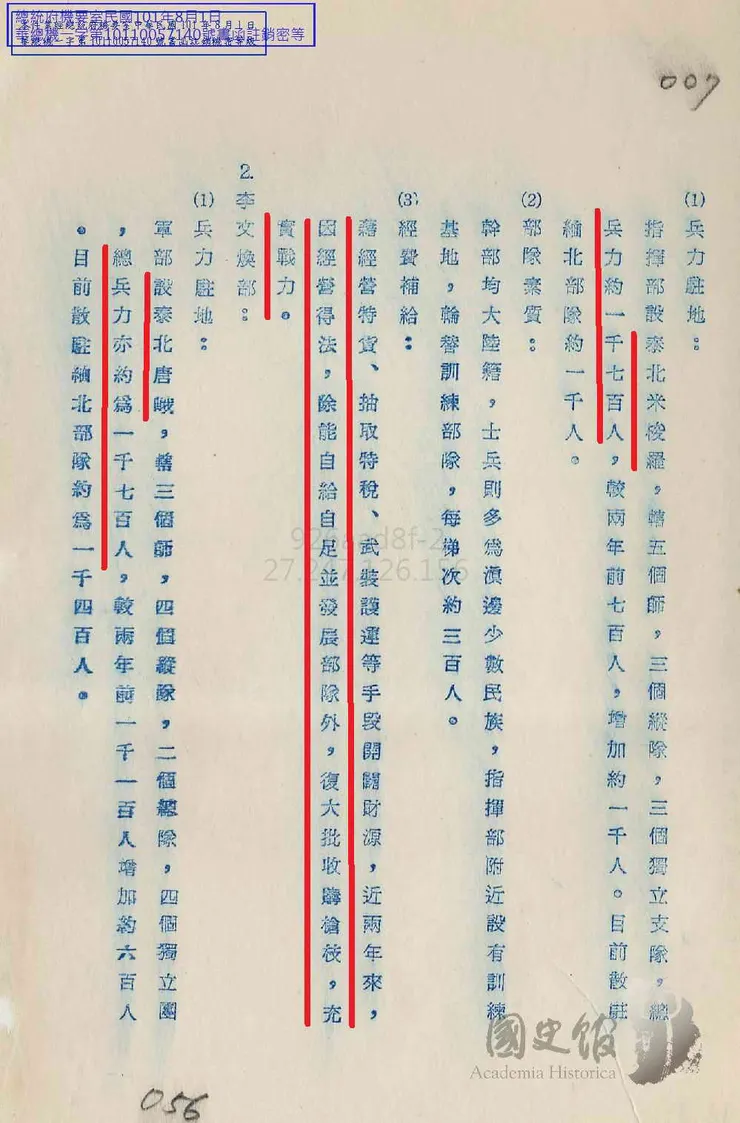 總統府機要室民國101年8月1日
華總機一字第10110057140號書函註銷密等
007
(1)兵力駐地：
指揮部設泰北米梭羅，轄五個師，三個縱隊，三個獨立支隊，總
兵力約一千七百人，較兩年前七百人，增加約一千人。目前散駐
緬北部隊約一千人。
(2)部隊素質：
幹部均大陸籍，士兵則多為滇邊少數民族，指揮部附近設有訓練
基地，輪替訓練部隊，每梯次約三百人。
(3)經費補給：
藉經營特貨、抽取特稅、武裝護運等手段開闢財源，近兩年來，
因經營得法，除能自給自足並發展部隊外，復大批收購槍枝，充
實戰力。
2.李文煥部：
(1)兵力駐地：
軍部設泰北唐峨，轄三個師，四個縱隊，二個總隊，四個獨立團
，總兵力亦約為一千七百人，較兩年前一千一百人增加約六百人
。目前散駐緬北部隊約為一千四百人。
27.247.126.156
國史館
Academia Historica
056